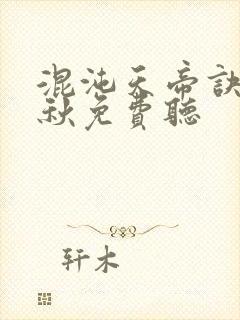 混沌天帝訣
秋免費聽
轩木